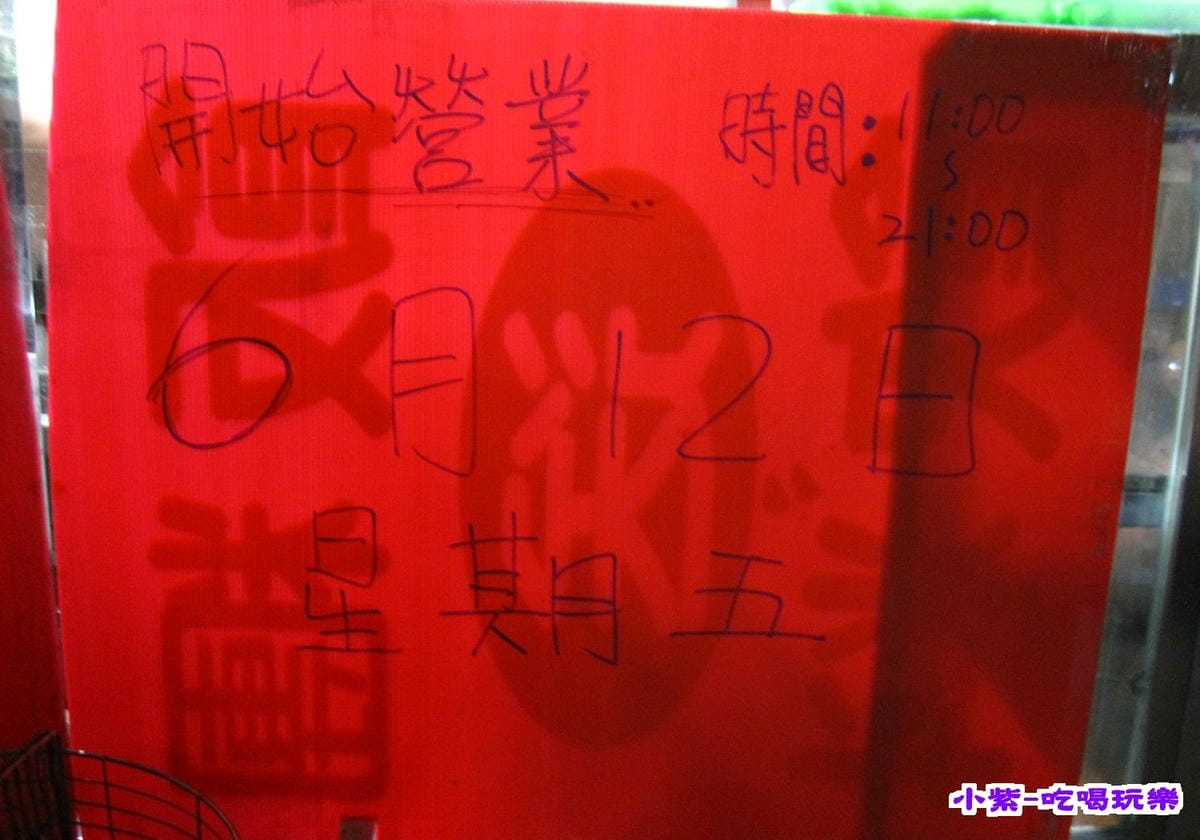 開始營業...
時間：11:00
~
21:00
6月12日
星期五
小紫-吃喝玩樂